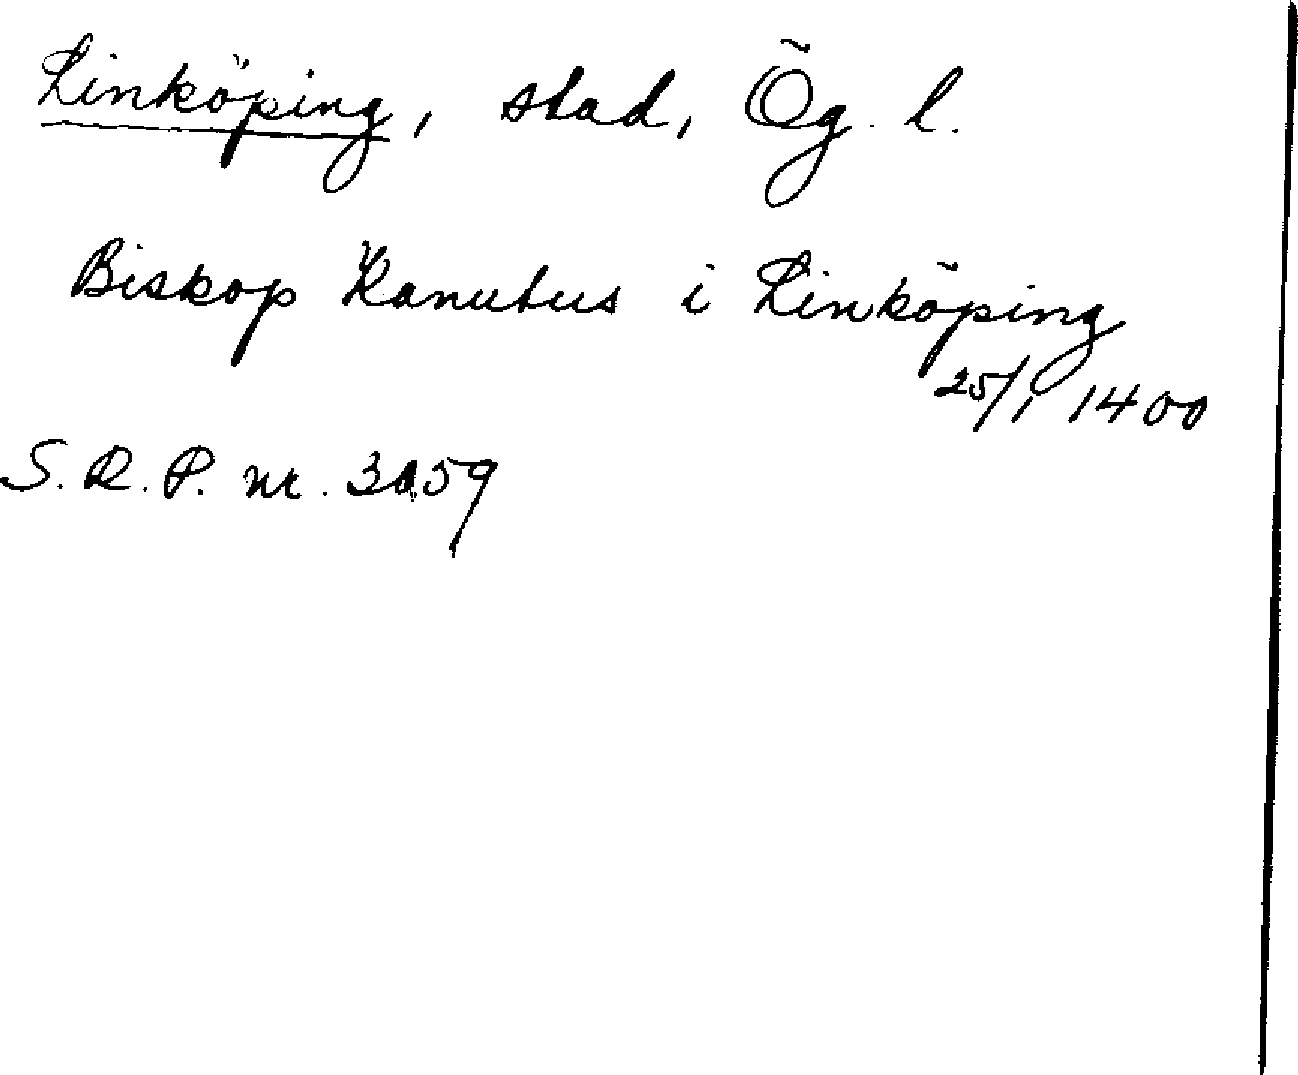 Linköping, stad, Ög. l.
Biskop Kanutus i Linköping
25/1 1400
S. R. P. nr. 3059